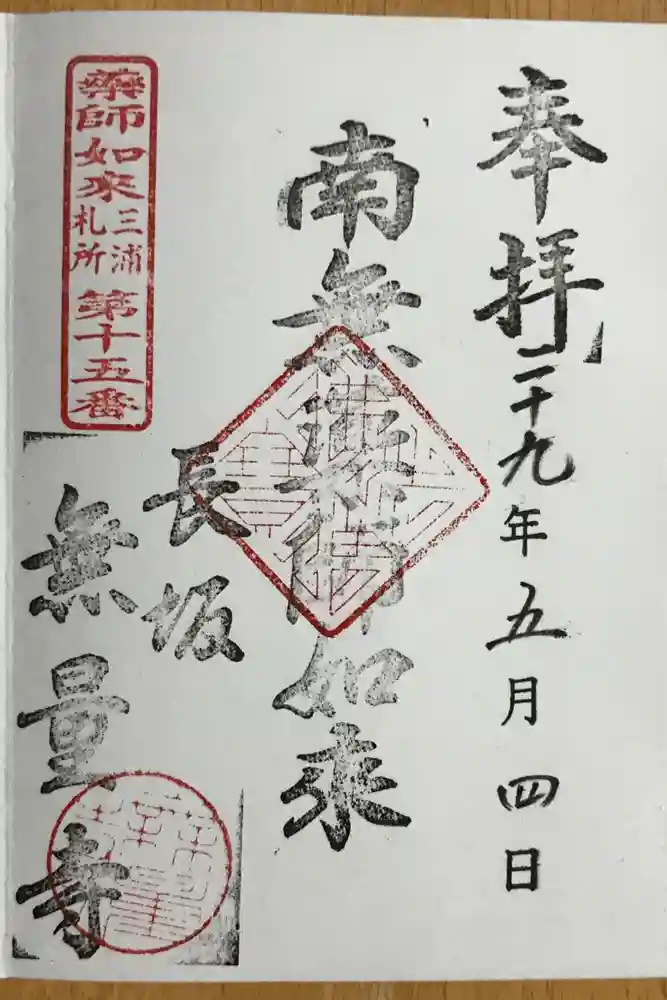 奉拝
二十九年五月四日
南無薬師如来
長坂
無量寺
薬師如来三浦札所第十五番